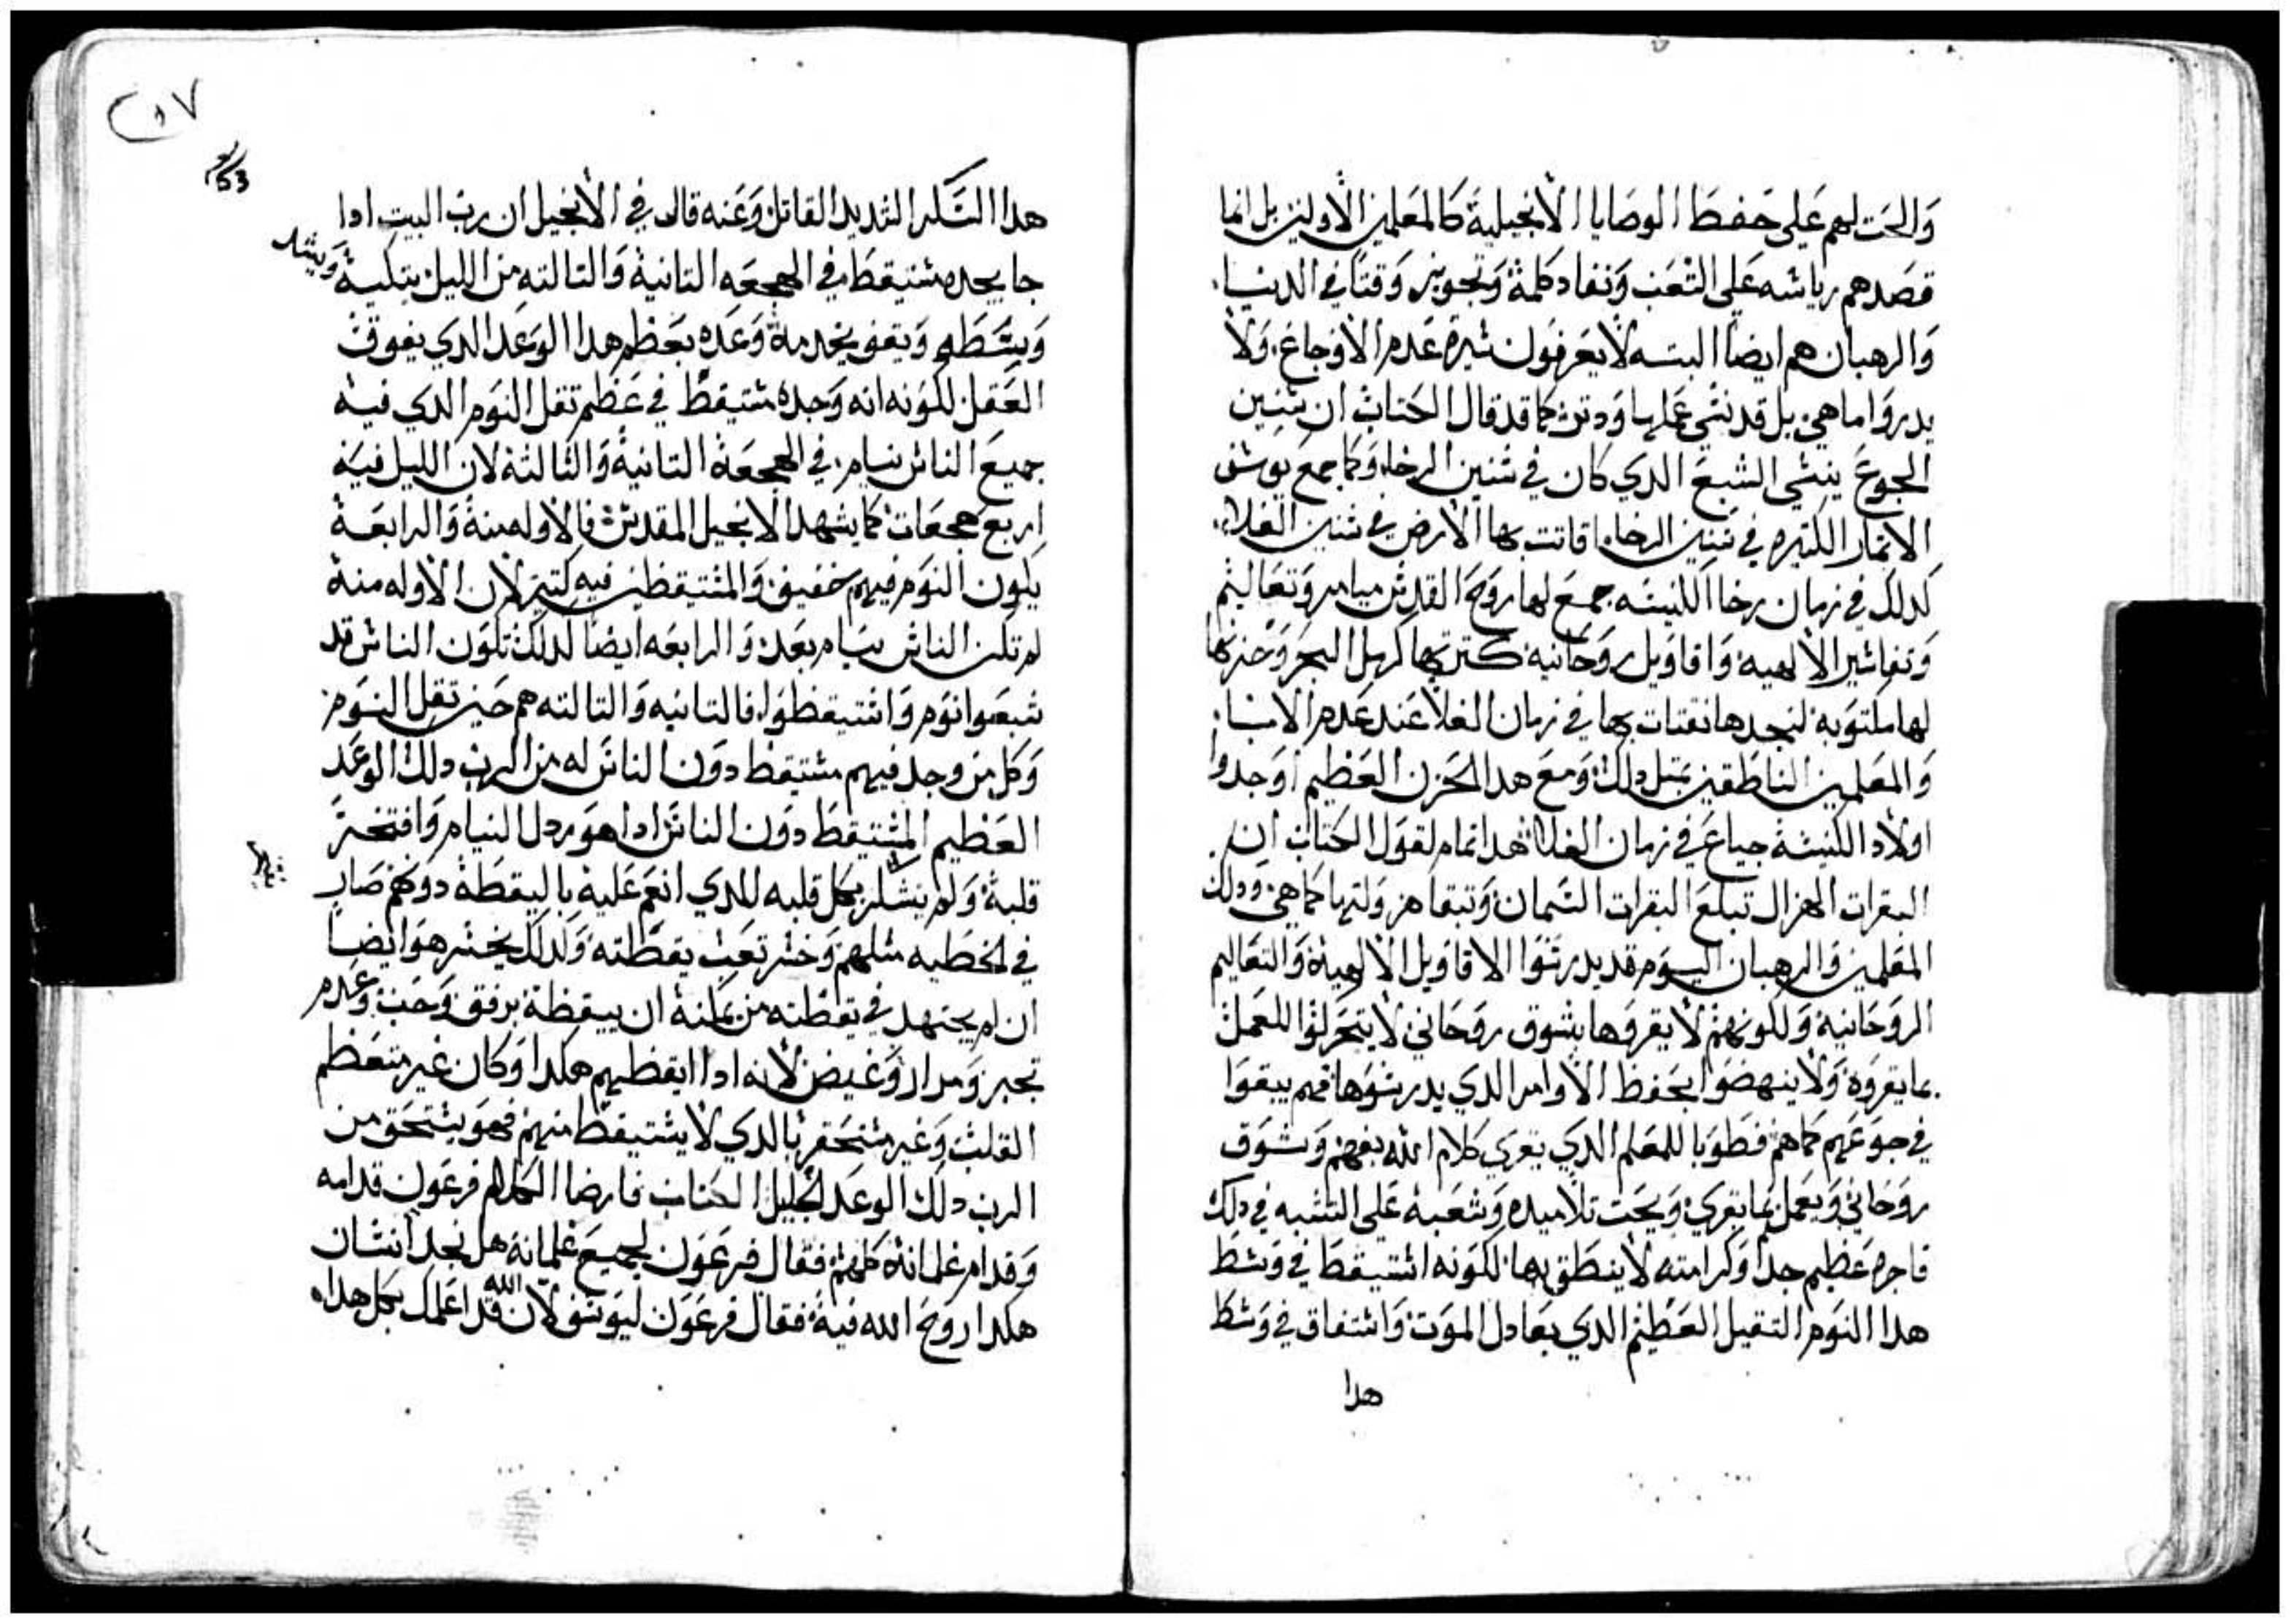 والحت لهم على حفظ الوصايا الانجيلية كالمعلمين الاولين بل انما
قصدهم رياسه على الشعب ونفاد كلمة وتجويز وقتا في الدنيا
والرهبان هم ايضا البته لا يعرفون سيرة عدم الاوجاع ولا
يدروا ما هي بل قد نسي عليها ودترت كما قد قال الكتاب ان سنين
الجوع ينسي الشبع الدي كان في سنين الرخاء وكما جمع يوسف
الاتمار الكتيره في سنين الرخاء اقاتت بها الارض في سنين الغلاء
كدلك في زمان رخا الكنيسه جمع لها روح القدس ميامر وتعاليم
وتفاسير الالهيه واقاويل روحانيه كترتها كرمل البحر وخزنها
لها مكتوبه لنجدها نقتات بها في زمان الغلا عند عدم الانبيا
والمعلمين الناطقين بمتل دلك ومع هدا الحزن العظيم اوجدوا
اولاد الكنيسة جياع في زمان الغلا هدا تمام لقول الكتاب ان
البقرات الهزال تبلع البقرات السمان وتبقا هزولتها كما هي ودلك
المعلمين والرهبان اليوم قد يدرسوا الاقاويل الالهية والتعاليم
الروحانية ولكونهم لا يقروها بشوق روحاني لا يتحركوا للعمل
بما يقروه ولا ينهضوا بحفظ الاوامر الدي يدرسوها فهم يبقوا
في جوعهم كما هم فطوبا للمعلم الدي يقري كلام الله بفهم وشوق
روحاني ويعمل بما يقري ويحت تلاميده وشعبه على التشبه في دلك
فاجره عظيم جدا وكرامته لا ينطق بها لكونه استيقظ في وسط
هدا النوم التقيل العظيم الدي يعادل الموت واستفاق في وسط
هدا
٢٥٧
53
هدا السكر الشديد القاتل وعنه قال في الانجيل ان رب البيت ادا
جا يجده مستيقظا في الهجعه التانية والتالته من الليل يتكيه
ويشد
وسطه ويقف يخدمة وعده بعظم هدا الوعد الدي يفوق
العقل لكونه انه وجده مستيقظ في عظم تقل النوم الدي فيه
جميع الناس نيام في الهجعة التانية والثالثة لان الليل فيه
اربع هجعات كما يشهد الانجيل المقدس فالاوله منة والرابعة
يكون النوم فيهم خفيف والمستيقظين فيه كتير لان الاوله منة
لم تكن الناس نيام بعد والرابعه ايضا كدلك تكون الناس قد
شبعوا نوم واستيقظوا فالتانيه والتالته هم حين تقل النوم
وكل من وجد فيهم مستيقظ دون الناس له من الرب دلك الوعد
العظيم المستيقظ دون الناس ادا هو ردل النيام وافتخر
قلبة ولم يشكر بكل قلبه للدي انعم علية باليقظة دونهم صار
في الخطيه متلهم وخسر تعب يقظته وكدلك يخسر هو ايضا
ان لم يجتهد في يقظته من يمكنة ان ييقظة برفق وحب وعدم
تجبر ومرار وغيض لانه ادا ايقظهم هكدا وكان غير متعظم
القلب وغير مستحقر بالدي لا يستيقظ منهم فهو يستحق من
الرب دلك الوعد الجليل الكتاب فارضا الكلام فرعون قدامه
وقدام غلمانة كلهم فقال فرعون لجميع غلمانة هل نجد انسان
هكدا روح الله فية فقال فرعون ليوسف لان الله قد اعلمك بكل هدا